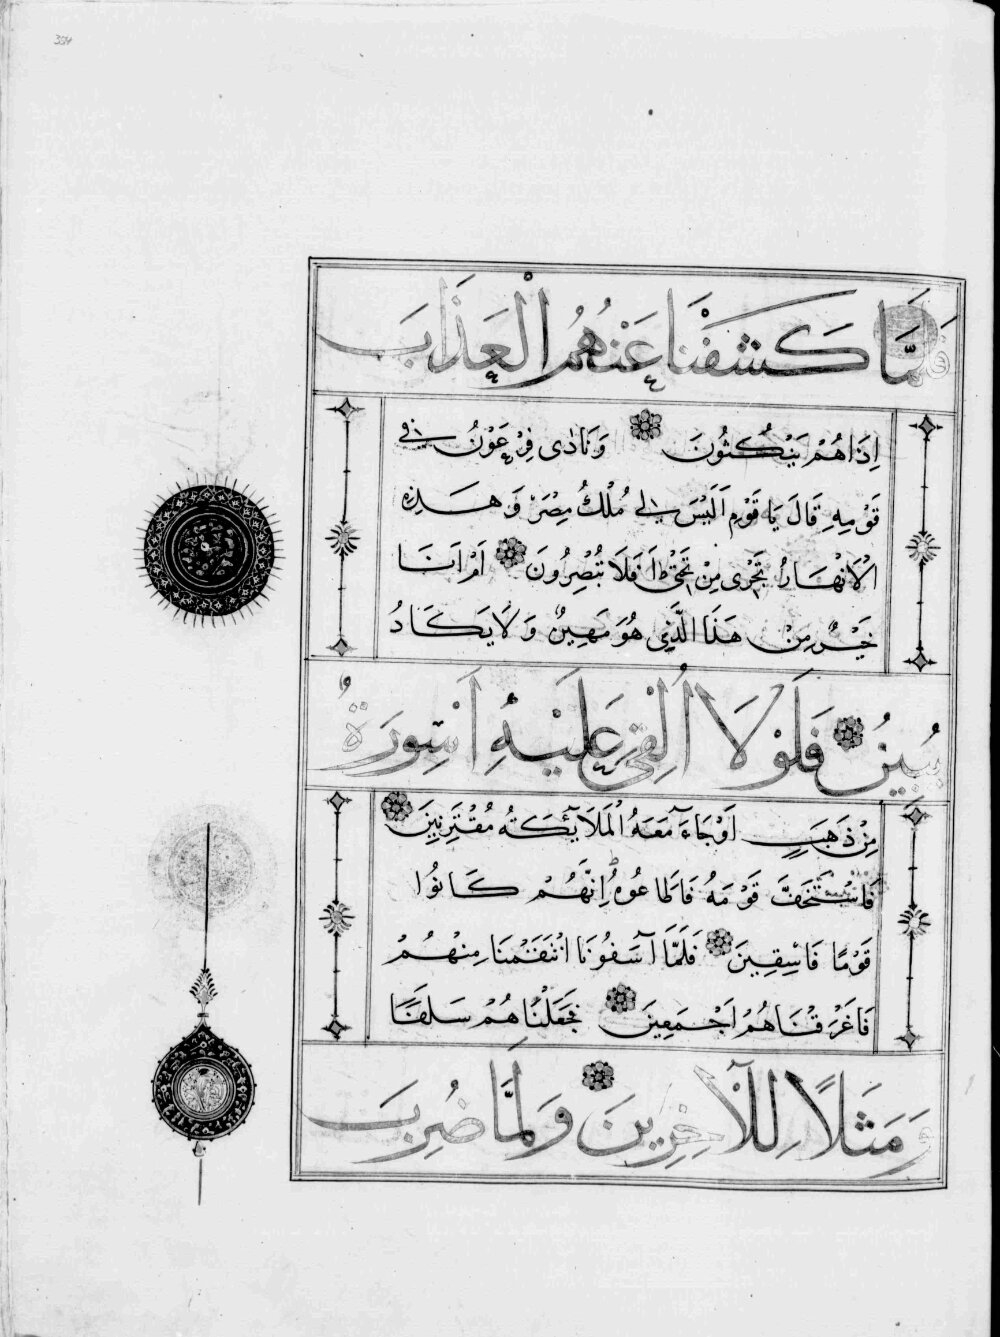 فَلَمَّا كَشَفْنَا عَنْهُمُ الْعَذَابَ
اِذَا هُمْ يَنْكُثُونَ وَنَادٰى فِرْعَوْنُ فِى
قَوْمِهِ قَالَ يَا قَوْمِ اَلَيْسَ لِى مُلْكُ مِصْرَ وَهٰذِهِ
الْاَنْهَارُ تَجْرِى مِنْ تَحْتِى اَفَلَا تُبْصِرُونَ اَمْ اَنَا
خَيْرٌ مِنْ هَذَا الَّذِى هُوَ مَهِينٌ وَلَا يَكَادُ
يُبِينُ فَلَوْلَا اُلْقِىَ عَلَيْهِ اَسْوِرَةٌ
مِنْ ذَهَبٍ اَوْ جَآءَ مَعَهُ الْمَلَآئِكَةُ مُقْتَرِنِينَ
فَاسْتَخَفَّ قَوْمَهُ فَاَطَاعُوهُ اِنَّهُمْ كَانُوا
قَوْمًا فَاسِقِينَ فَلَمَّا آسَفُونَا انْتَقَمْنَا مِنْهُمْ
فَاَغْرَقْنَاهُمْ اَجْمَعِينَ فَجَعَلْنَاهُمْ سَلَفًا
وَمَثَلًا لِلْآخِرِينَ وَلَمَّا ضُرِبَ